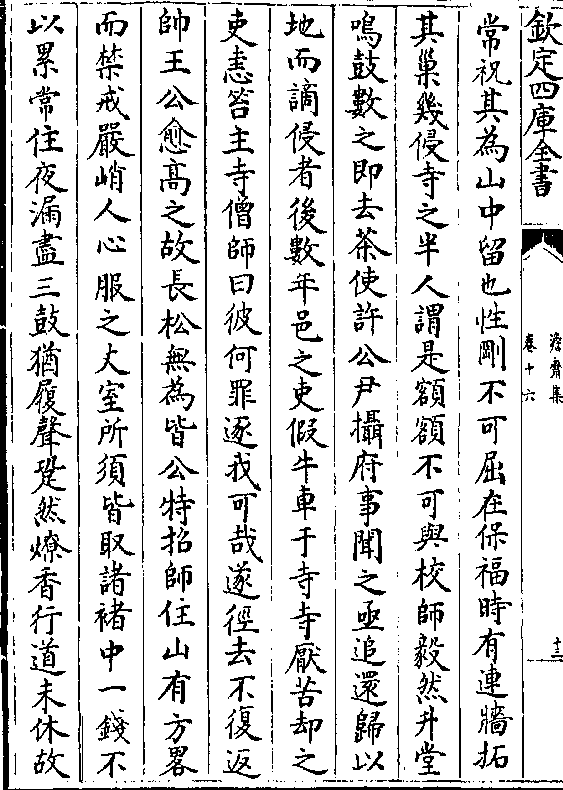 欽定四庫全書
澹齋集
卷十六
十三
常祝其為山中留也性剛不可屈在保福時有連牆拓
其巢幾侵寺之半人謂是額額不可與校師毅然升堂
鳴鼓數之即去茶使許公尹攝府事聞之亟追還歸以
地而謫侵者後數年邑之吏假牛車于寺寺厭苦却之
吏恚笞主寺僧師曰彼何罪逐我可哉遂徑去不復返
帥王公愈高之故長松無為皆公特招師住山有方畧
而禁戒嚴峭人心服之丈室所須皆取諸褚中一錢不
以累常住夜漏盡三鼓猶履聲跫然燎香行道未休故